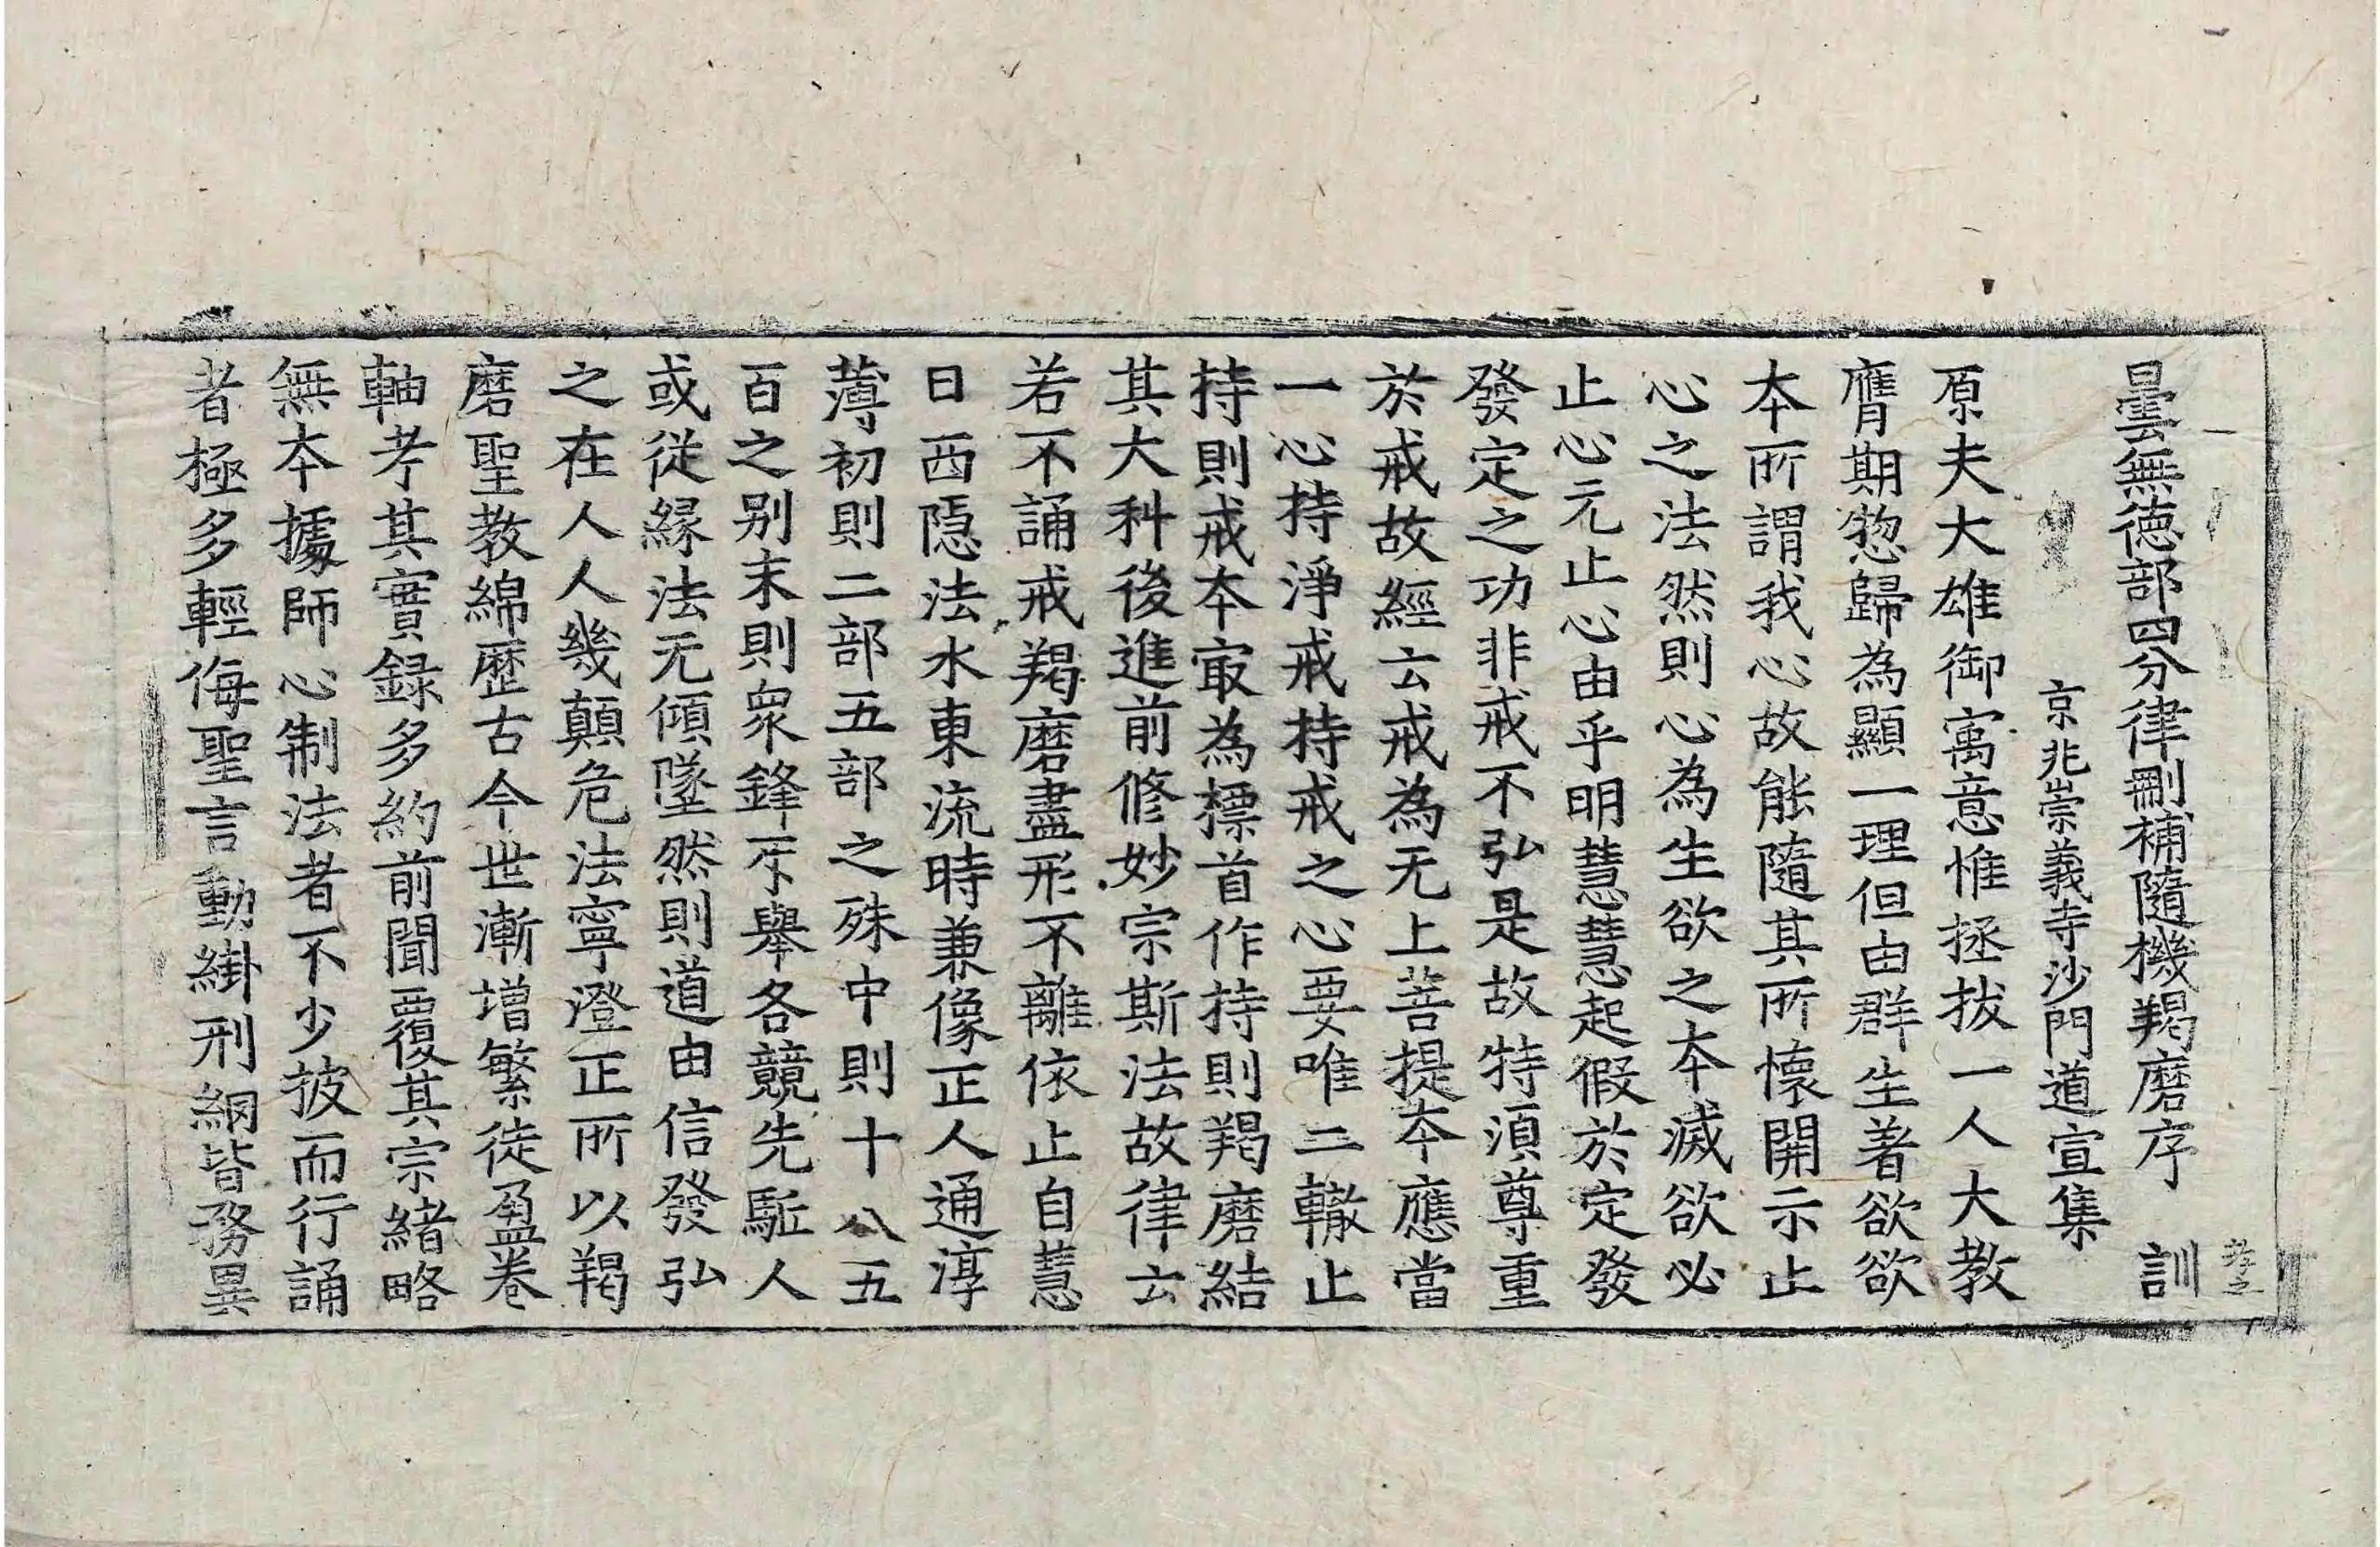 曇無德部四分律刪補隨機羯磨序　訓
京兆崇義寺沙門道宣集
原夫大雄御寓意惟拯拔一人大教
膺期惣歸為顯一理但由群生著欲欲
本所謂我心故能隨其所懷開示止
心之法然則心為生欲之本滅欲必
止心元止心由乎明慧慧起假於定發
發定之功非戒不弘是故特湏尊重
於戒故經云戒為无上菩提本應當
一心持淨戒持戒之心要唯二轍止
持則戒本㝡為標首作持則羯磨結
其大科後進前修妙宗斯法故律云
若不誦戒羯磨盡形不離依止自慧
日西隱法水東流時兼像正人通淳
薄初則二部五部之殊中則十八五
百之別末則衆鋒互舉各競先駈人
或從緣法无傾墜然則道由信發弘
之在人人幾顛危法寧澄正所以羯
磨聖教綿歷古今世漸增繁徒盈卷
軸考其實録多約前聞覆其宗緒略
無本據師心制法者不少披而行誦
者極多輕侮聖言動絓刑綱皆務異